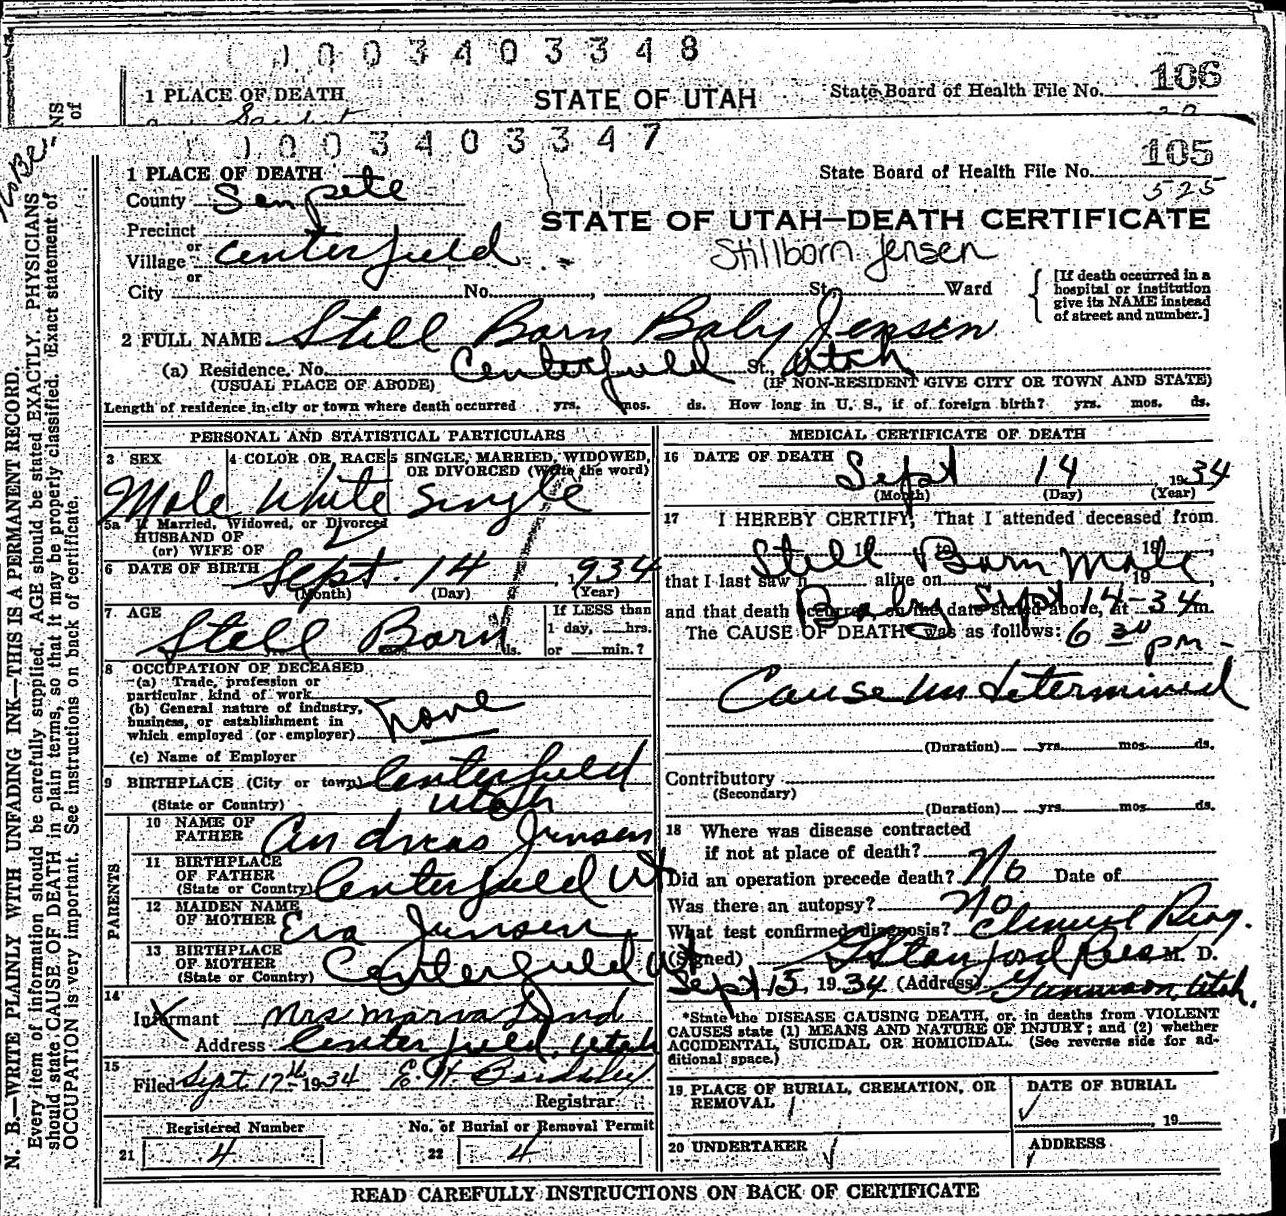 0003403348
106
1 PLACE OF DEATH
STATE OF UTAH
State Board of Health File No.
0003403347
105
1 PLACE OF DEATH
State Board of Health File No.
525
County Senpete
STATE OF UTAH—DEATH CERTIFICATE
Precinct
or
Village Centerfield
Stillborn Jensen
or
City No. , St., Ward
[If death occurred in a
hospital or institution
give its NAME instead
of street and number.]
2 FULL NAME Still Born Baby Jensen
(a) Residence. No. Centerfield St., Utah
(USUAL PLACE OF ABODE) (IF NON-RESIDENT GIVE CITY OR TOWN AND STATE)
Length of residence in city or town where death occurred yrs. mos. ds. How long in U. S., if of foreign birth? yrs. mos. ds.
PERSONAL AND STATISTICAL PARTICULARS
3 SEX 4 COLOR OR RACE 5 SINGLE, MARRIED, WIDOWED,
OR DIVORCED (Write the word)
Male White Single
5a If Married, Widowed, or Divorced
HUSBAND OF
(or) WIFE OF
6 DATE OF BIRTH Sept. 14, 1934
(Month) (Day) (Year)
7 AGE If LESS than
Still Born 1 day, hrs.
mos. ds. or min.?
8 OCCUPATION OF DECEASED
(a) Trade, profession or
particular kind of work
(b) General nature of industry,
business, or establishment in
which employed (or employer) none
(c) Name of Employer
9 BIRTHPLACE (City or town) Centerfield
(State or Country) Utah
PARENTS
10 NAME OF
FATHER Andreas Jensen
11 BIRTHPLACE
OF FATHER
(State or Country) Centerfield Ut
12 MAIDEN NAME
OF MOTHER Eva Jensen
13 BIRTHPLACE
OF MOTHER
(State or Country) Centerfield Ut
14
Informant Mrs Maria Lund
Address Centerfield, Utah
15
Filed Sept. 17th 1934 E. H.
Registrar
Registered Number No. of Burial or Removal Permit
21 4 22 4
MEDICAL CERTIFICATE OF DEATH
16 DATE OF DEATH Sept 14, 1934
(Month) (Day) (Year)
17 I HEREBY CERTIFY, That I attended deceased from
Still Born Male
19 19
that I last saw h alive on , 19 ,
Baby Sept 14-34
and that death occurred on the date stated above, at m.
The CAUSE OF DEATH was as follows: 6 30
pm -
Cause Undetermined
(Duration) yrs. mos. ds.
Contributory
(Secondary)
(Duration) yrs. mos. ds.
18 Where was disease contracted
if not at place of death?
Did an operation precede death? No Date of
Was there an autopsy? No
What test confirmed diagnosis?
(Signed) G Stanford Rees M. D.
Sept 15, 1934 (Address) Gunnison, Utah.
*State the DISEASE CAUSING DEATH, or, in deaths from VIOLENT
CAUSES state (1) MEANS AND NATURE OF INJURY; and (2) whether
ACCIDENTAL, SUICIDAL OR HOMICIDAL. (See reverse side for ad-
ditional space.)
19 PLACE OF BURIAL, CREMATION, OR
REMOVAL
DATE OF BURIAL
, 19
20 UNDERTAKER ADDRESS
READ CAREFULLY INSTRUCTIONS ON BACK OF CERTIFICATE
N. B.—WRITE PLAINLY WITH UNFADING INK—THIS IS A PERMANENT RECORD.
Every item of information should be carefully supplied. AGE should be stated EXACTLY. PHYSICIANS
should state CAUSE OF DEATH in plain terms, so that it may be properly classified. Exact statement of
OCCUPATION is very important. See instructions on back of certificate.